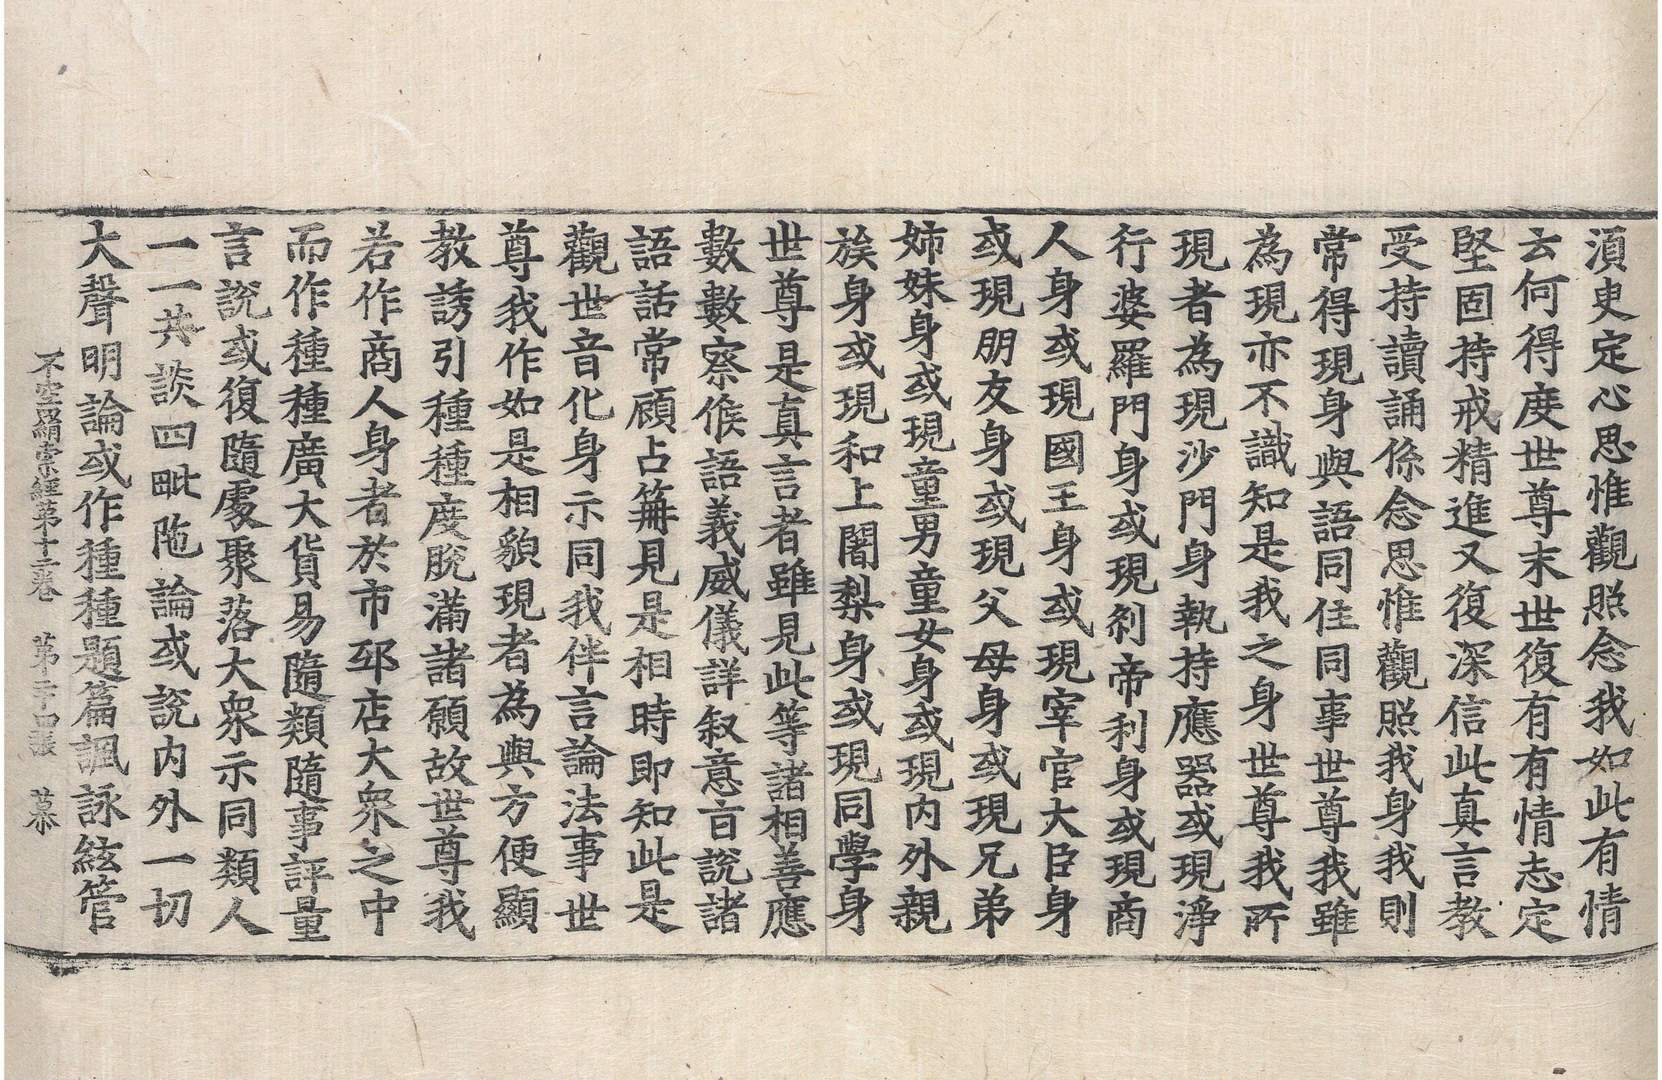 須叓定心思惟觀照念我如此有情
云何得度世尊末世復有有情志定
堅固持戒精進又復深信此真言教
受持讀誦係念思惟觀照我身我則
常得現身與語同住同事世尊我雖
為現亦不識知是我之身世尊我所
現者為現沙門身執持應器或現淨
行婆羅門身或現刹帝利身或現商
人身或現國王身或現宰官大臣身
或現朋友身或現父母身或現兄弟
姊妹身或現童男童女身或現內外親
族身或現和上闍梨身或現同學身
世尊是真言者雖見此等諸相善應
數數察候語義威儀詳叙意百說諸
語話常顧占筭見是相時即知此是
觀世音化身示同我伴言論法事世
尊我作如是相貌現者為與方便顯
教誘引種種度脫滿諸願故世尊我
若作商人身者於市邸店大衆之中
而作種種廣大貨易隨類隨事評量
言說或復隨處聚落大衆示同類人
一一共談四毗陁論或說內外一切
大聲明論或作種種題篇諷詠絃管
不空羂索經第十二卷 第二十四張 慕